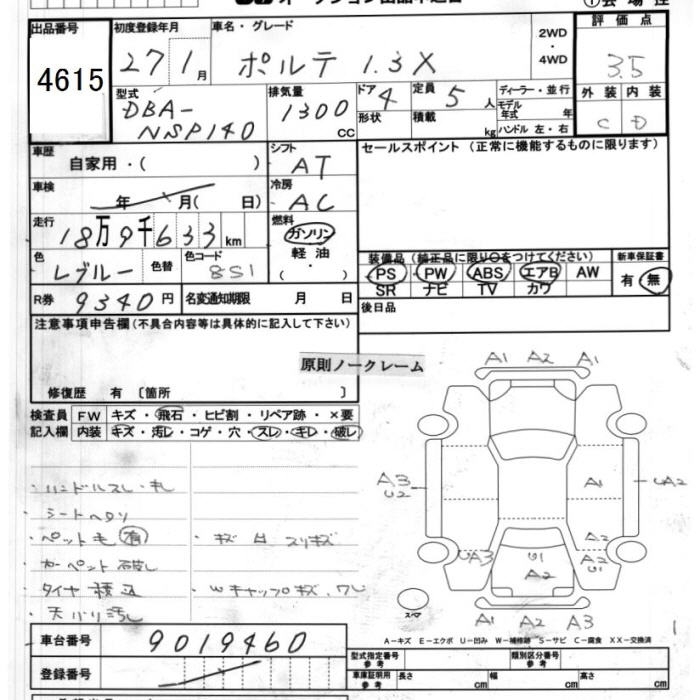 オークション出品申込書
①会場控
出品番号
4615
初度登録年月
27 1月
車名・グレード
ポルテ 1.3X
2WD・4WD
評価点
3.5
外装 内装
C D
型式
DBA-NSP140
排気量
1300 CC
ドア
4
形状
定員
5人
積載
kg
ディーラー・並行
モデル年式 年
ハンドル 左・右
車歴
自家用・( )
シフト
AT
セールスポイント (正常に機能するものに限ります)
車検
年 月( 日)
冷房
AC
走行
18万9千633km
燃料
ガソリン
軽油
・
( )
色
Lブルー
色替
色コード
8S1
装備品 (純正品に限り○をつけてください)
新車保証書
PS PW ABS エアB AW
SR ナビ TV カワ
有・無
R券
9340円
名変通知期限 月 日
後日品
注意事項申告欄(不具合内容等は具体的に記入して下さい)
原則ノークレーム
修復歴 有 〔箇所 〕
検査員記入欄
FW キズ・飛石・ヒビ割・リペア跡・×要
内装 キズ・汚し・コゲ・穴・スレ・キレ・破し
・ハンドルスレ・キレ
・シートヘタリ
・ペット毛 有
・カーペット破し
・タイヤ積込
・天バリ汚し
・キズ 凹 スリキズ
・Wキャップキズ、ワレ
A1 A2 A1
A3
U2
A1
UA2
A2
A2
U1
UA3
U1
A2
スペア
A1 A2 A3
1
A-キズ E-エクボ U-凹み W-補修跡 S-サビ C-腐食 XX-交換済
車台番号
9019460
登録番号
型式指定番号 参考
類別区分番号 参考
車庫証明用 参考
長さ cm
幅 cm
高さ cm